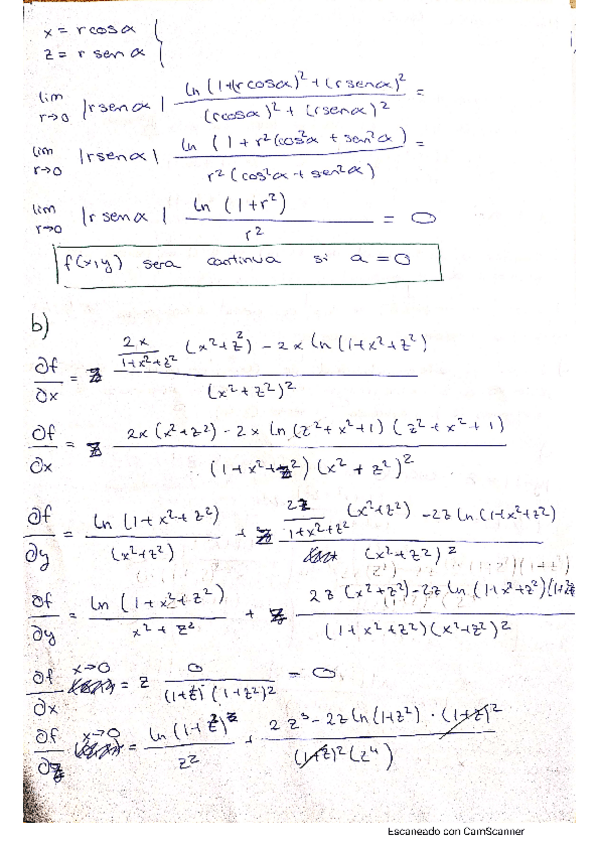 x = r cos α
z = r sen α
lim r→0 |r sen α| ln (1+(r cos α)² + (r sen α)² / (r cos α)² + (r sen α)² =
lim r→0 |r sen α| ln (1 + r² (cos²α + sen²α) / r² (cos²α + sen²α) =
lim r→0 |r sen α| ln (1+r²) / r² = 0
f(x,y) sera continua si a = 0
b)
∂f/∂x = z 2x/1+x²+z² (x²+z²) - 2x ln (1+x²+z²) / (x²+z²)²
∂f/∂x = z 2x (x²+z²) - 2x ln (z²+x²+1) (z²+x²+1) / (1+x²+z²) (x²+z²)²
∂f/∂y = ln (1+x²+z²) / (x²+z²) + z 2z/1+x²+z² (x²+z²) - 2z ln (1+x²+z²) / (x²+z²)²
∂f/∂y = ln (1+x²+z²) / x²+z² + z 2z (x²+z²) - 2z ln (1+x²+z²) / (1+x²+z²) (x²+z²)²
∂f/∂x x→0 = z 0 / = 0
∂f/∂z x→0 = ln / z² + 2z³ - 2z ln (1+z²) · (1+z)² / (1+z)² (z⁴)
Escaneado con CamScanner